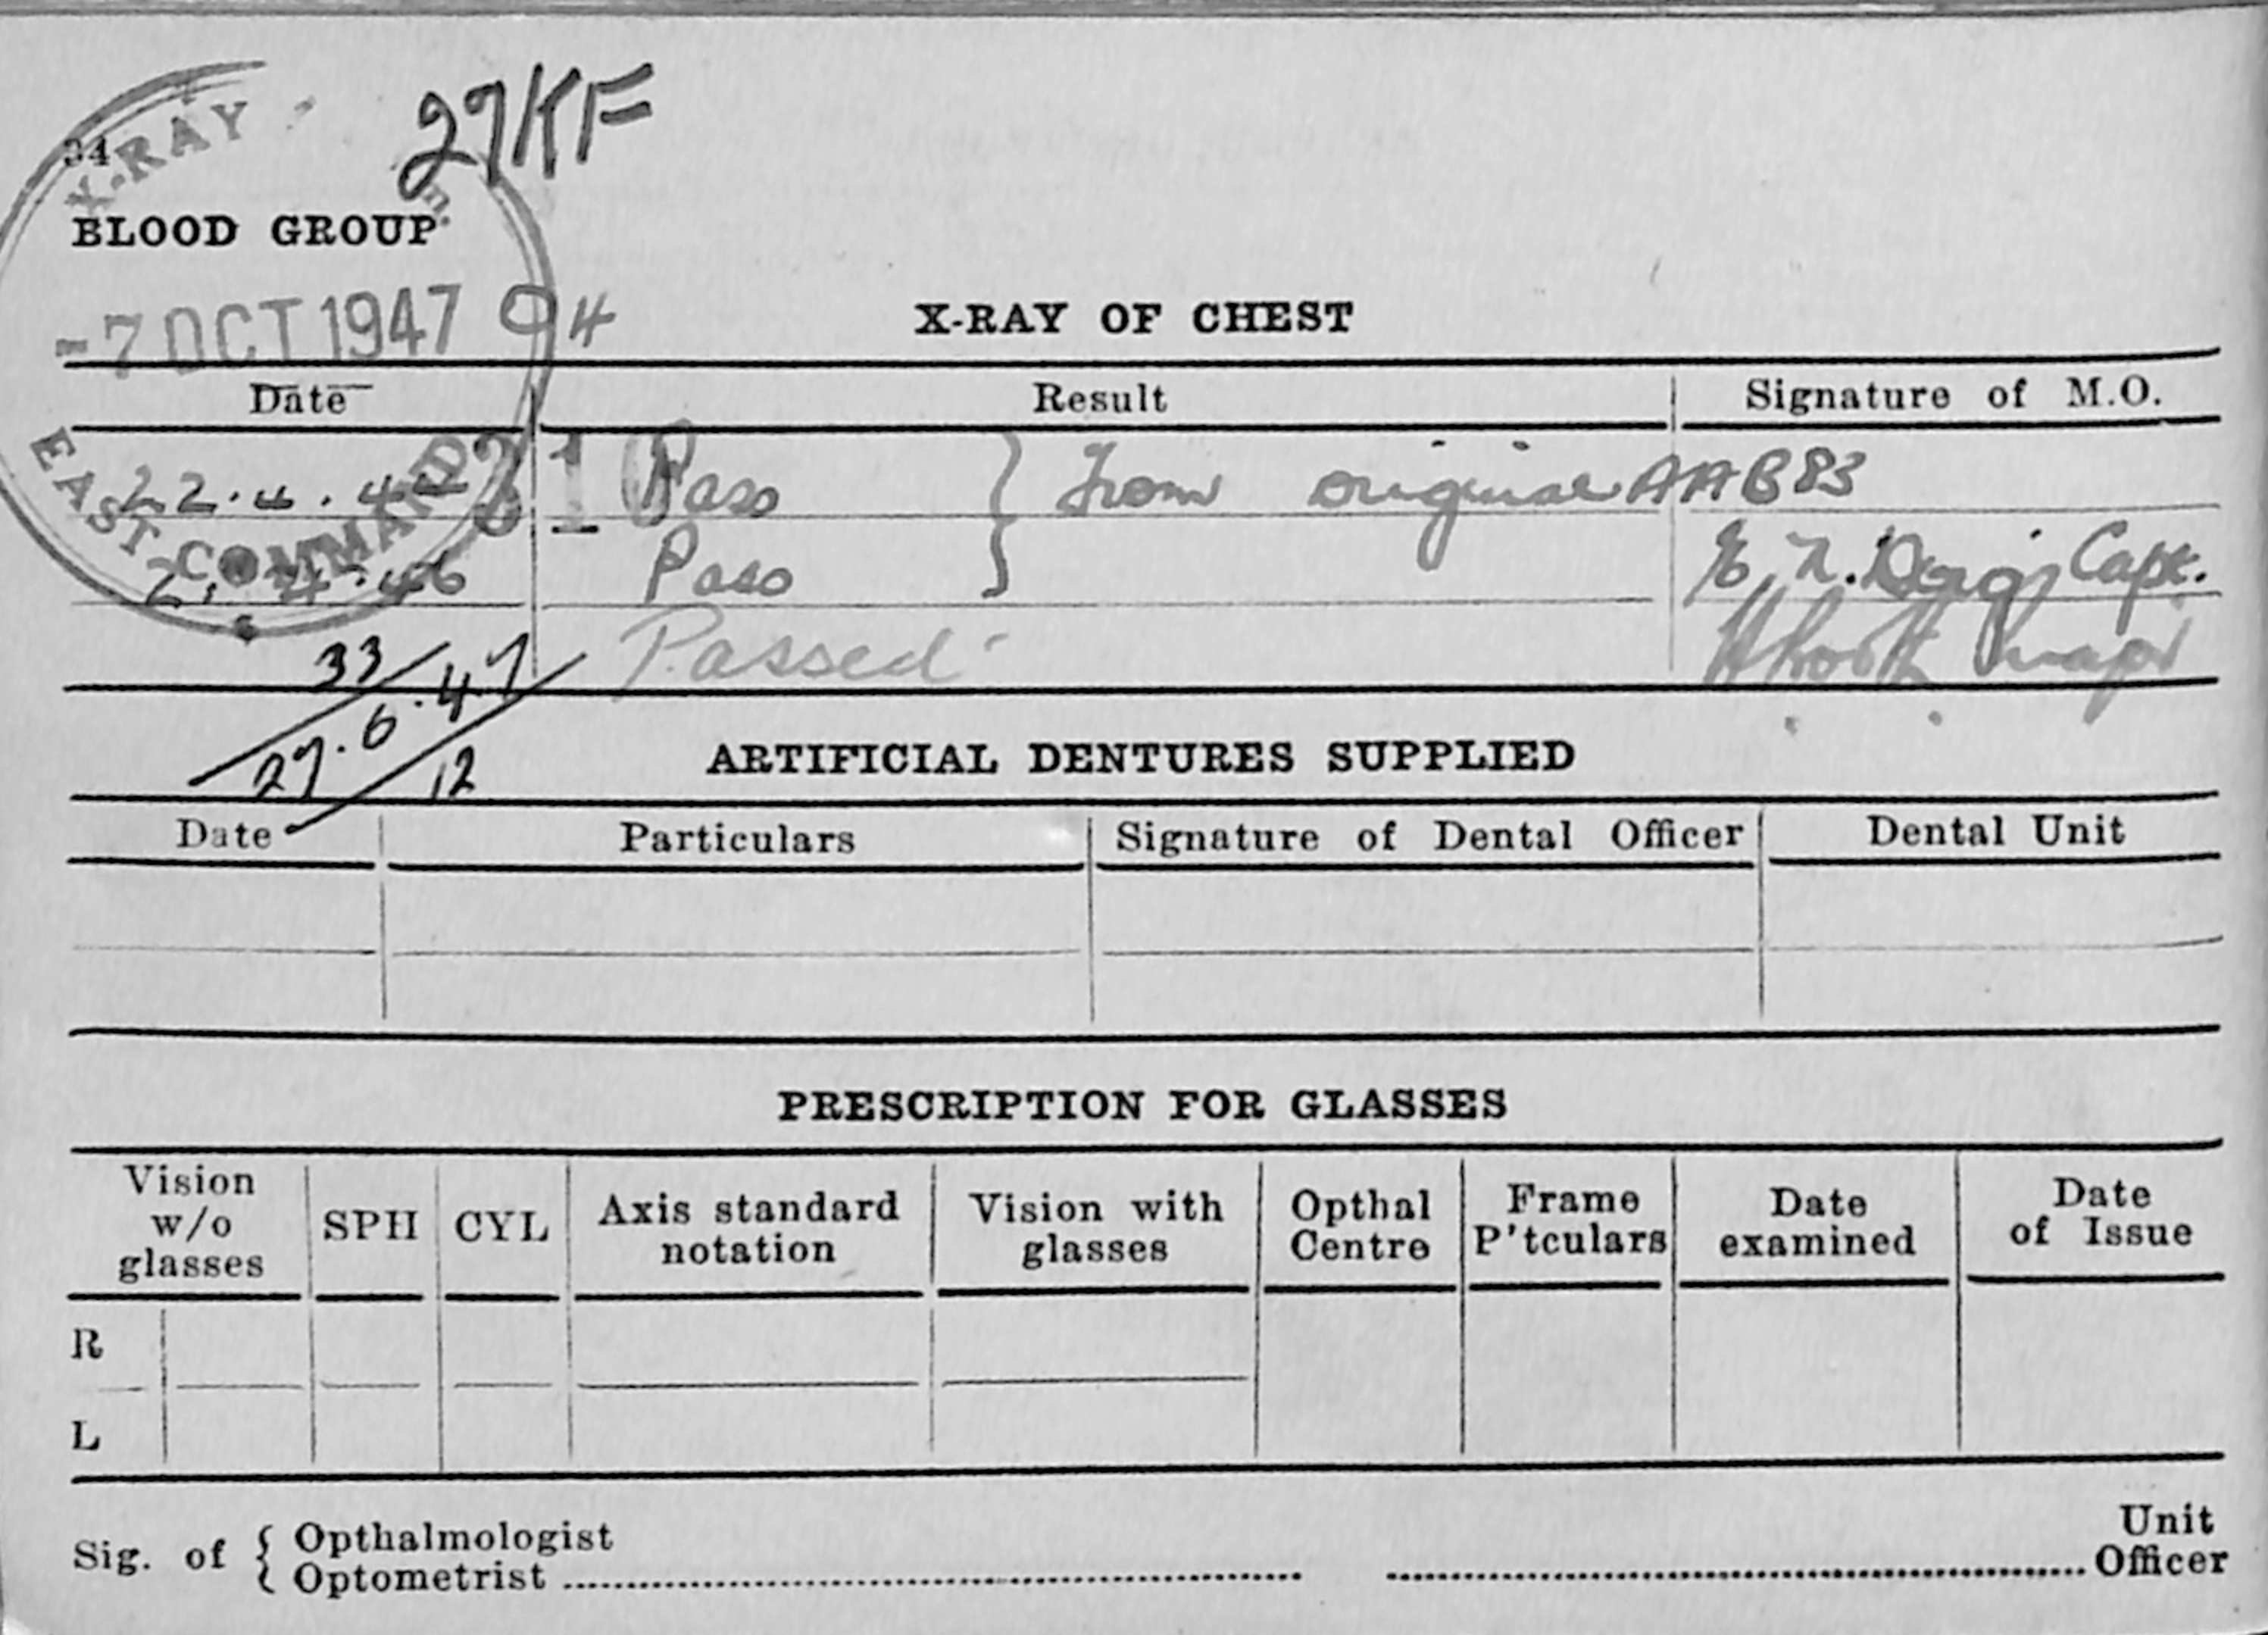 27KF
34
X-RAY
BLOOD GROUP
-7 OCT 1947 O4
X-RAY OF CHEST
Date Result Signature of M.O.
22.4.44 Pass } From original AAB83
EAST COMMAND
2.4.46 Pass Capt.
33/27.6.47/12 Passed
ARTIFICIAL DENTURES SUPPLIED
Date Particulars Signature of Dental Officer Dental Unit
PRESCRIPTION FOR GLASSES
Vision w/o glasses SPH CYL Axis standard notation Vision with glasses Opthal Centre Frame P'tculars Date examined Date of Issue
R
L
Sig. of { Opthalmologist
Optometrist ........ ........ Unit Officer